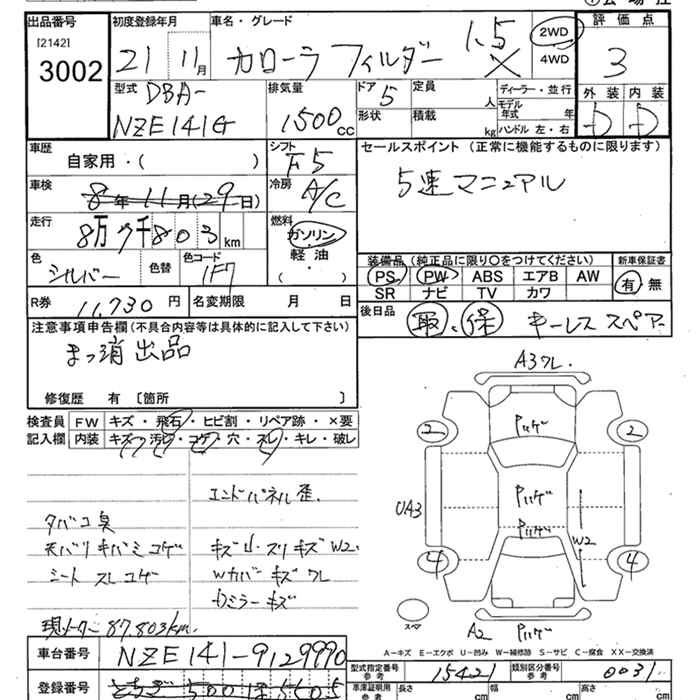 出品番号 初度登録年月 車名・グレード 評価点
[2142]
3002
21 11月 カローラ フィルダー 1.5 X 2WD 4WD 3
型式 DBA-
NZE141G
排気量 1500cc
ドア 5 定員 人
形状 積載 kg
ディーラー・並行
モデル年式 年
ハンドル 左・右
外装 内装
D D
車歴 自家用・( )
シフト F5
セールスポイント (正常に機能するものに限ります)
5速マニュアル
車検 8年11月(29日)
冷房 A/C
走行 8万7千803km
燃料 ガソリン
軽油
・( )
色 シルバー 色替 色コード 1F7
装備品 (純正品に限り○をつけてください) 新車保証書
PS PW ABS エアB AW
SR ナビ TV カワ
有・無
R券 11,730円 名変期限 月 日
後日品 取、保 キーレス スペアー
注意事項申告欄 (不具合内容等は具体的に記入して下さい)
まっ消出品
修復歴 有 [箇所 ]
検査員 FW キズ・飛石・ヒビ割・リペア跡・×要
記入欄 内装 キズ・汚レ・コゲ・穴・スレ・キレ・破レ
エンドパネル歪
タバコ臭
天バリ キバミ コゲ
シート スレ コゲ
キズ凹 スリキズ W2
Wカバー キズ ワレ
ドミラー キズ
現メーター 87,803km
A3 ワレ
2 2
Pハゲ
UA3
Pハゲ
Pハゲ
W2
4 4
スペア
A2 Pハゲ
A-キズ E-エクボ U-凹み W-補修跡 S-サビ C-腐食 XX-交換済
車台番号 NZE141-9129990
型式指定番号 参考 15421 類別区分番号 参考 0031
登録番号 とちぎ500
車庫証明用 参考 長さ cm 幅 cm 高さ cm